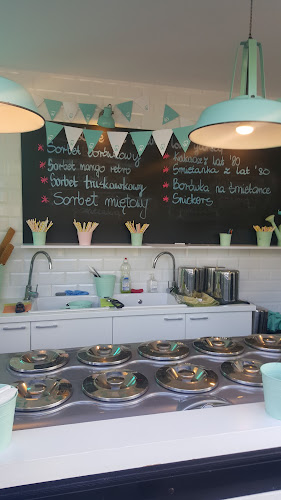 * Sorbet borówkowy
* Sorbet mango retro
* Sorbet truskawkowy
* Sorbet miętowy
z lat '80
z lat '80
* Śmietanka z lat '80
* Borówka na śmietance
* Snickers